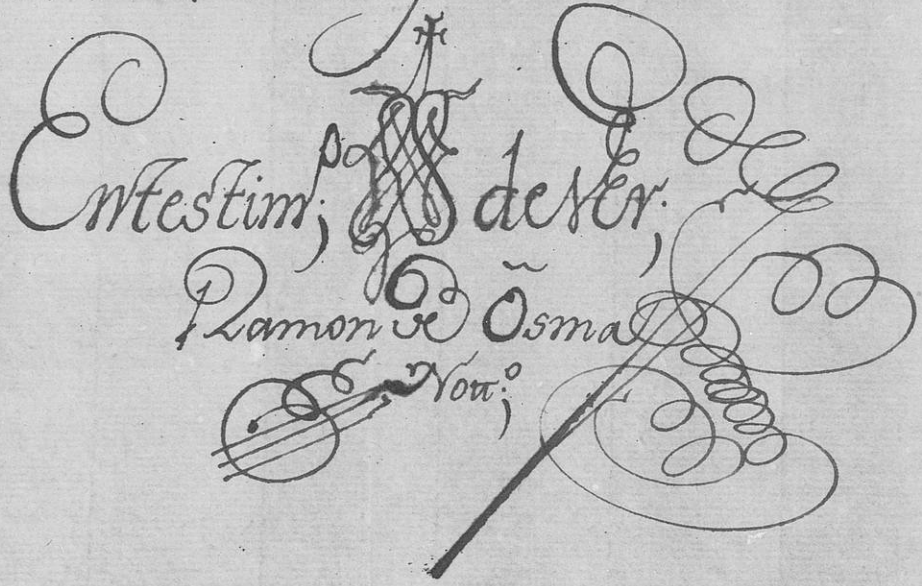 En testim;º de Ver;
Ramon de Osma
Nott;º